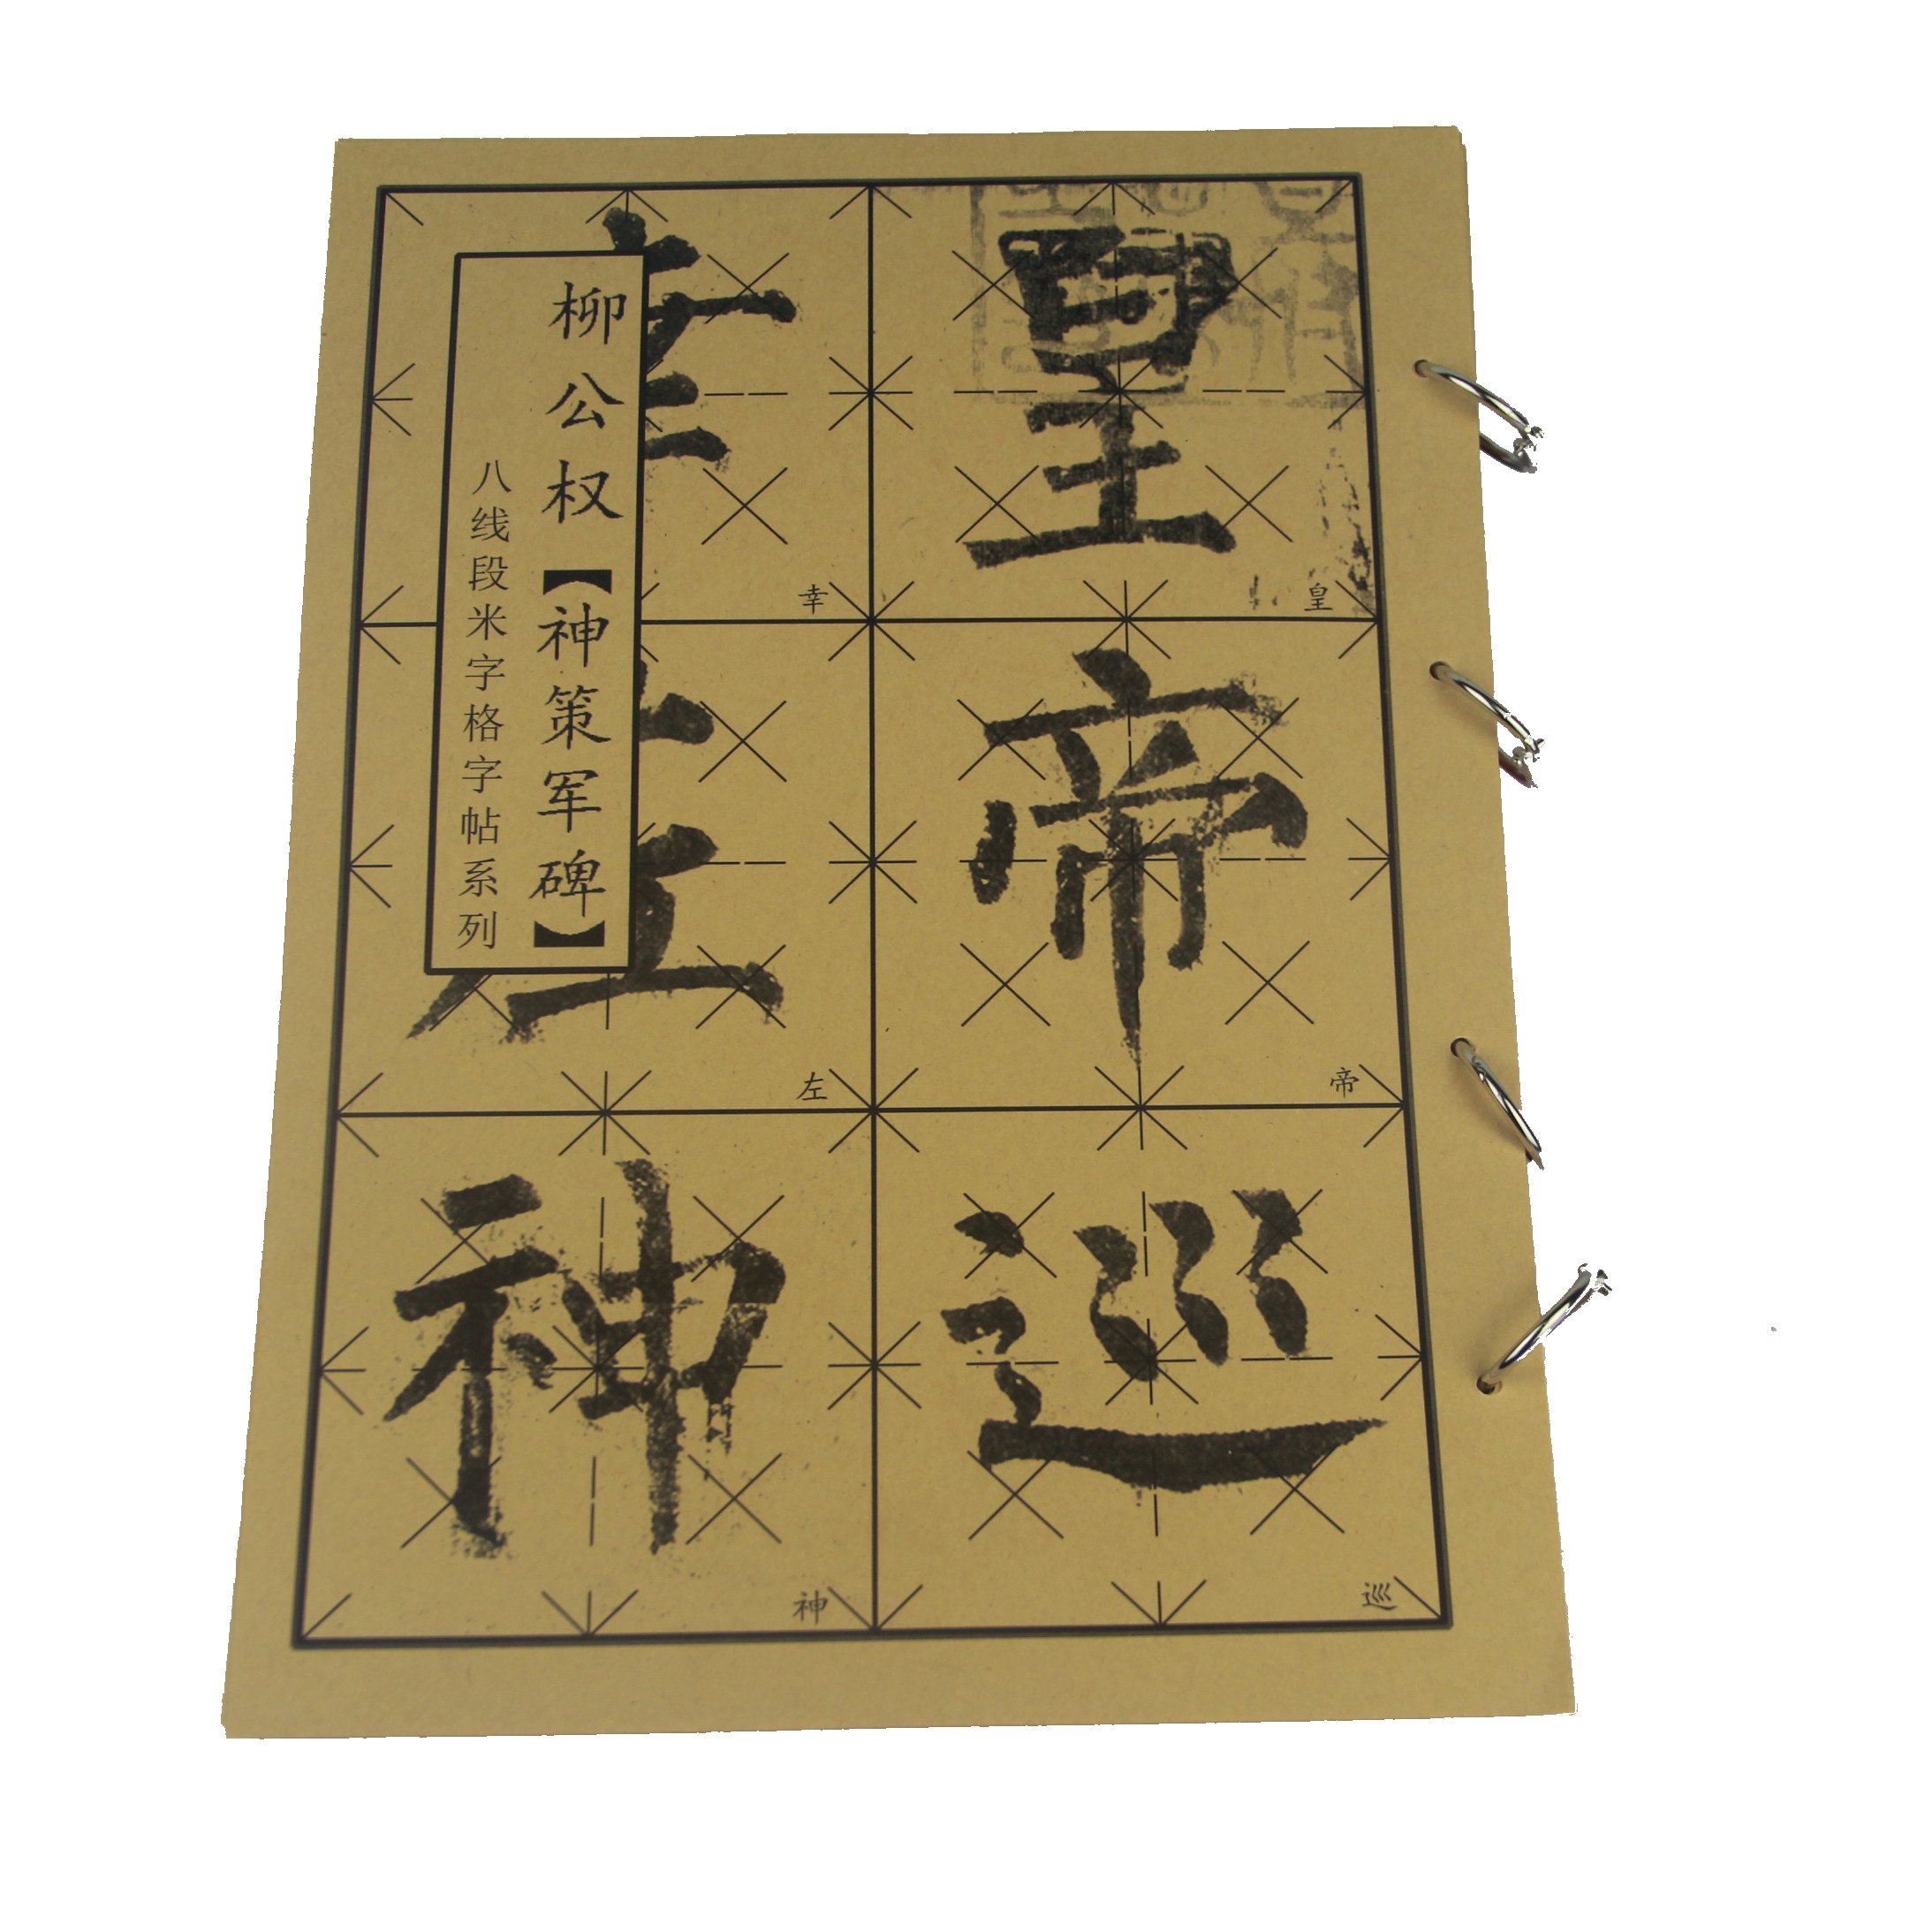 皇帝巡
皇
帝
巡
幸左神
幸
左
神
柳公权【神策军碑】
八线段米字格字帖系列